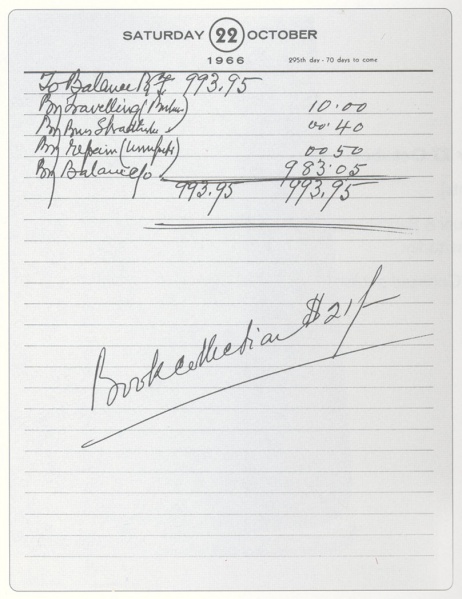 SATURDAY 22 OCTOBER
1966 295th day - 70 days to come
To Balance B/F 993.95
By Travelling ( ) 10.00
By Bus 00.40
By repair ( ) 00.50
By Balance c/o 983.05
993.95 993.95
Book collection $21/-